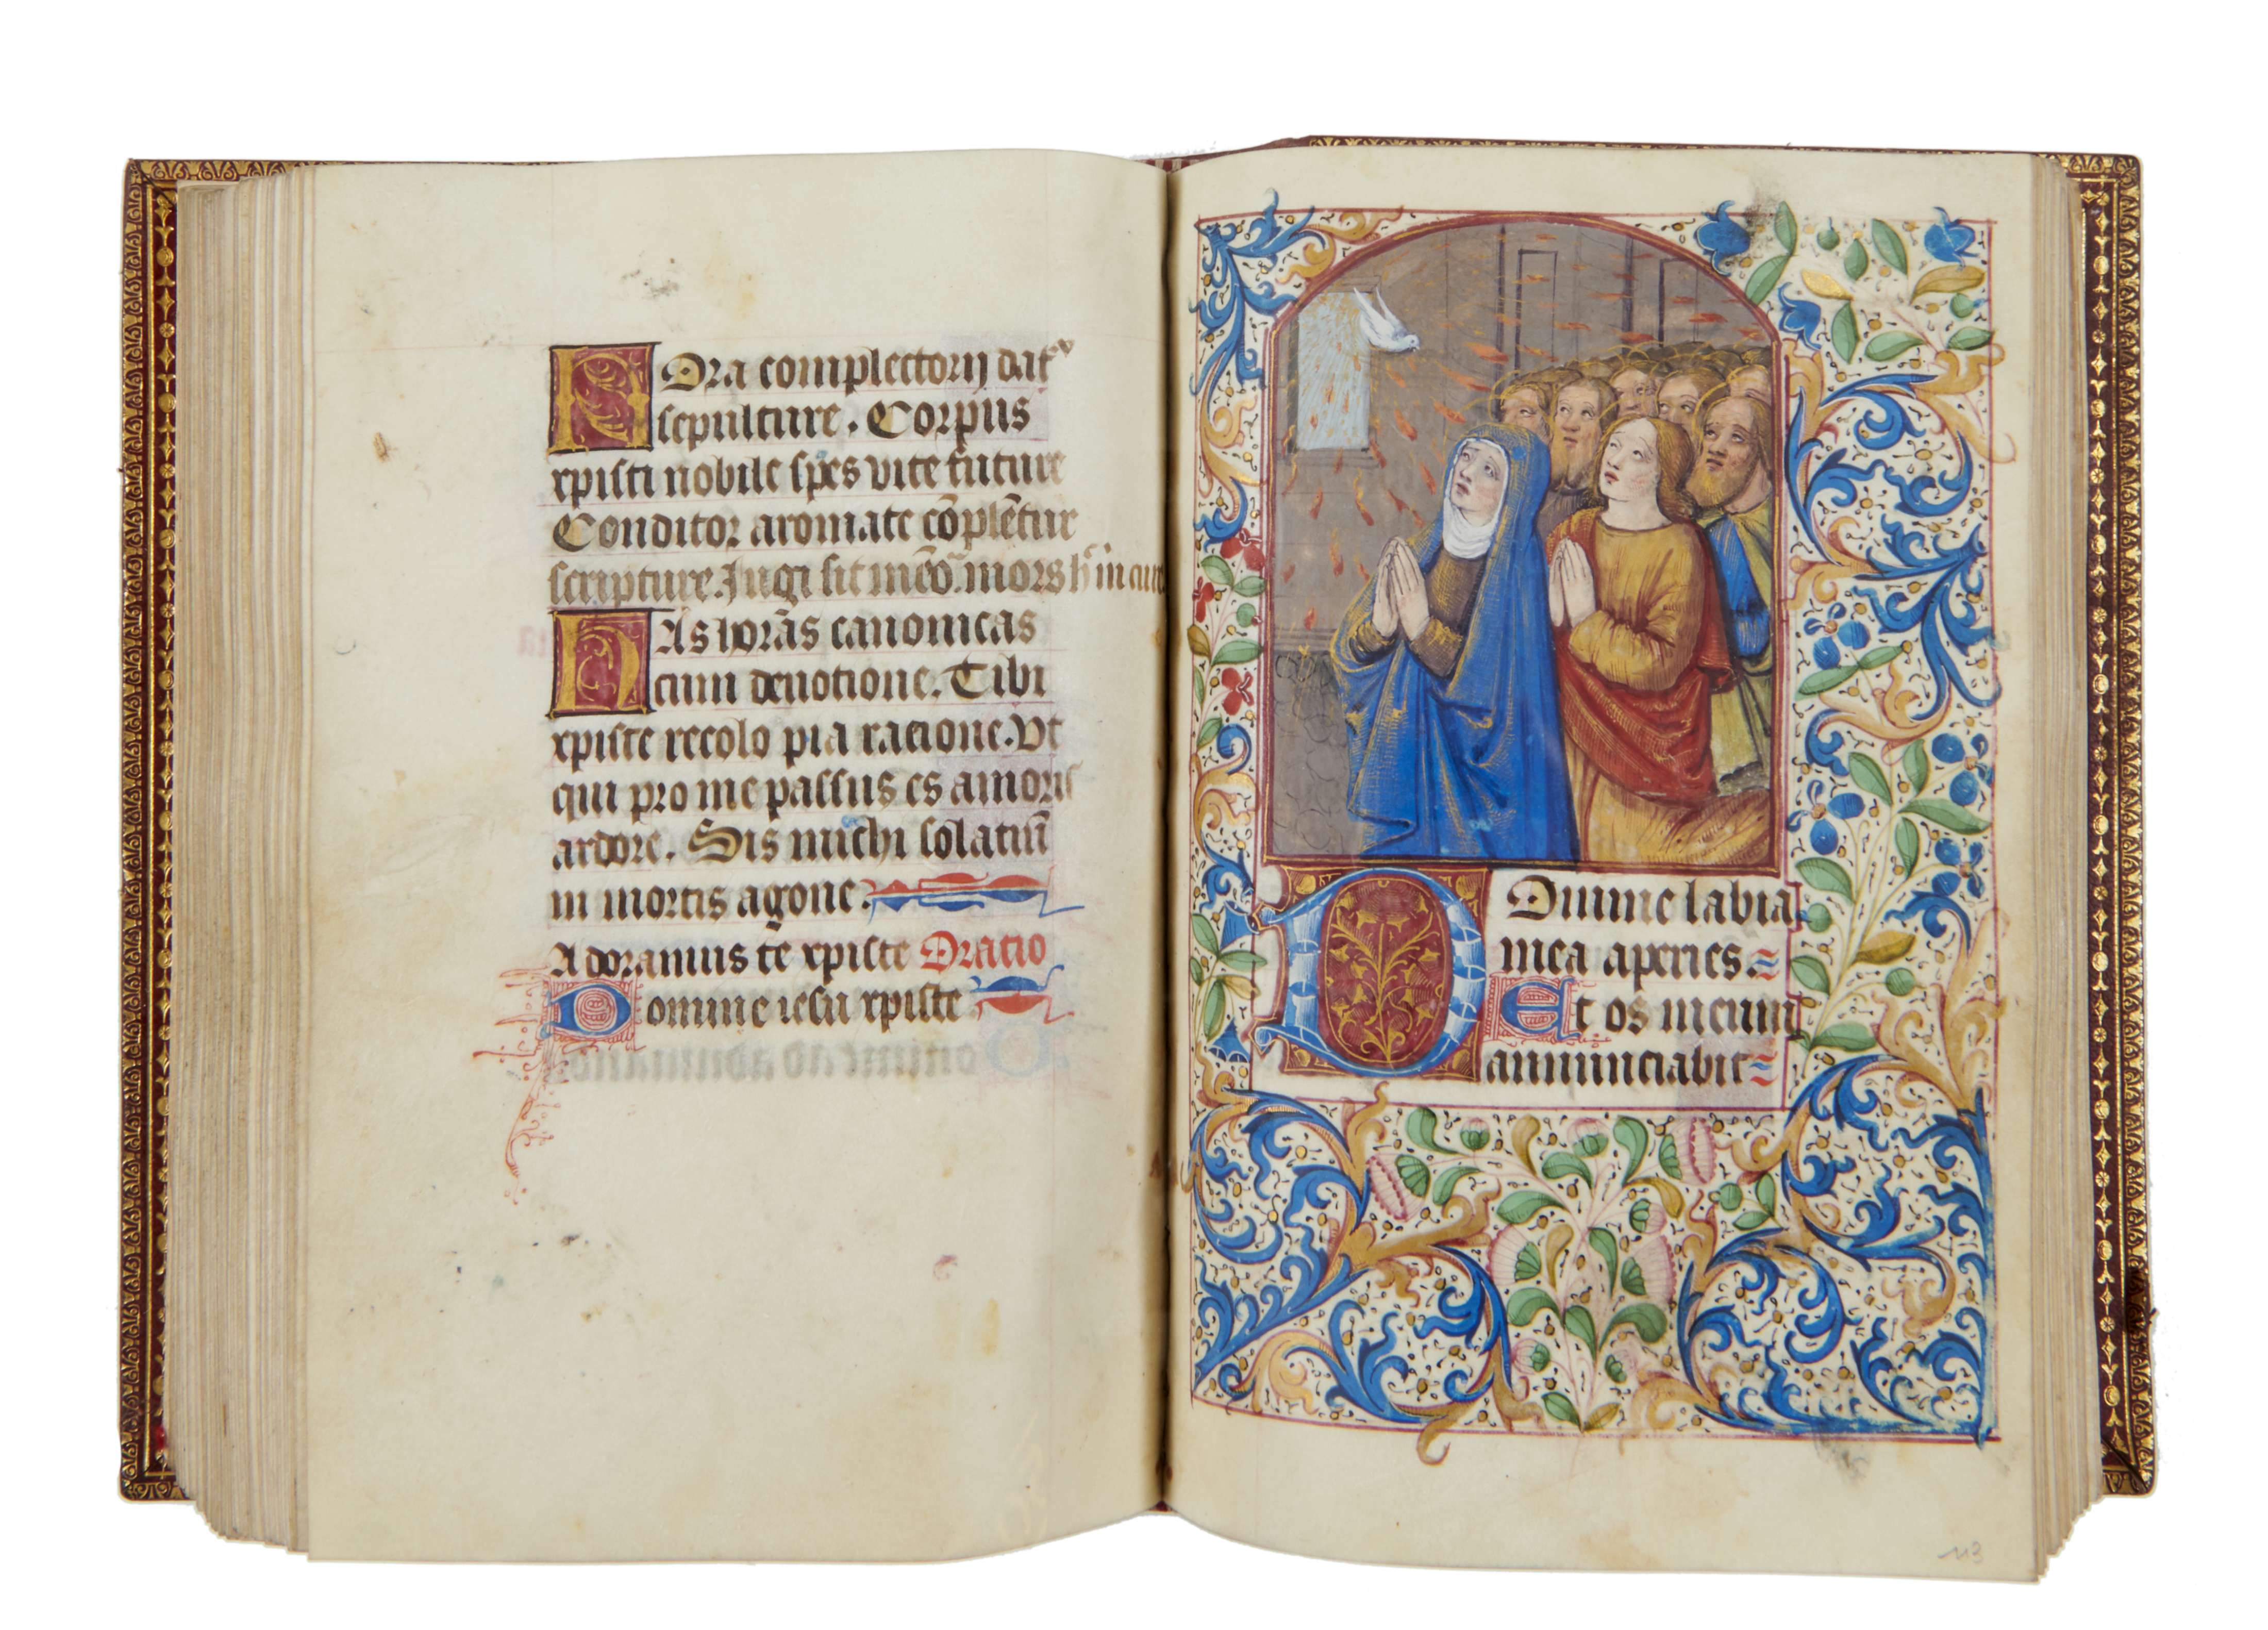 Hora complectorij dat~
sepulture. Corpus
xpisti nobile spes vite future
Conditor aromate cōplēntur
scripture. Jugi sit meō mors h in cura
Has horas canonicas
cum deuotione. Tibi
xpiste recolo pia racione. Vt
qui pro me passus es amoris
ardore. Sis michi solatiū
in mortis agone.
Adoramus te xpiste Oracio
Domine iesu xpiste
Domine labia
mea aperies.
Et os meum
annunciabit
113